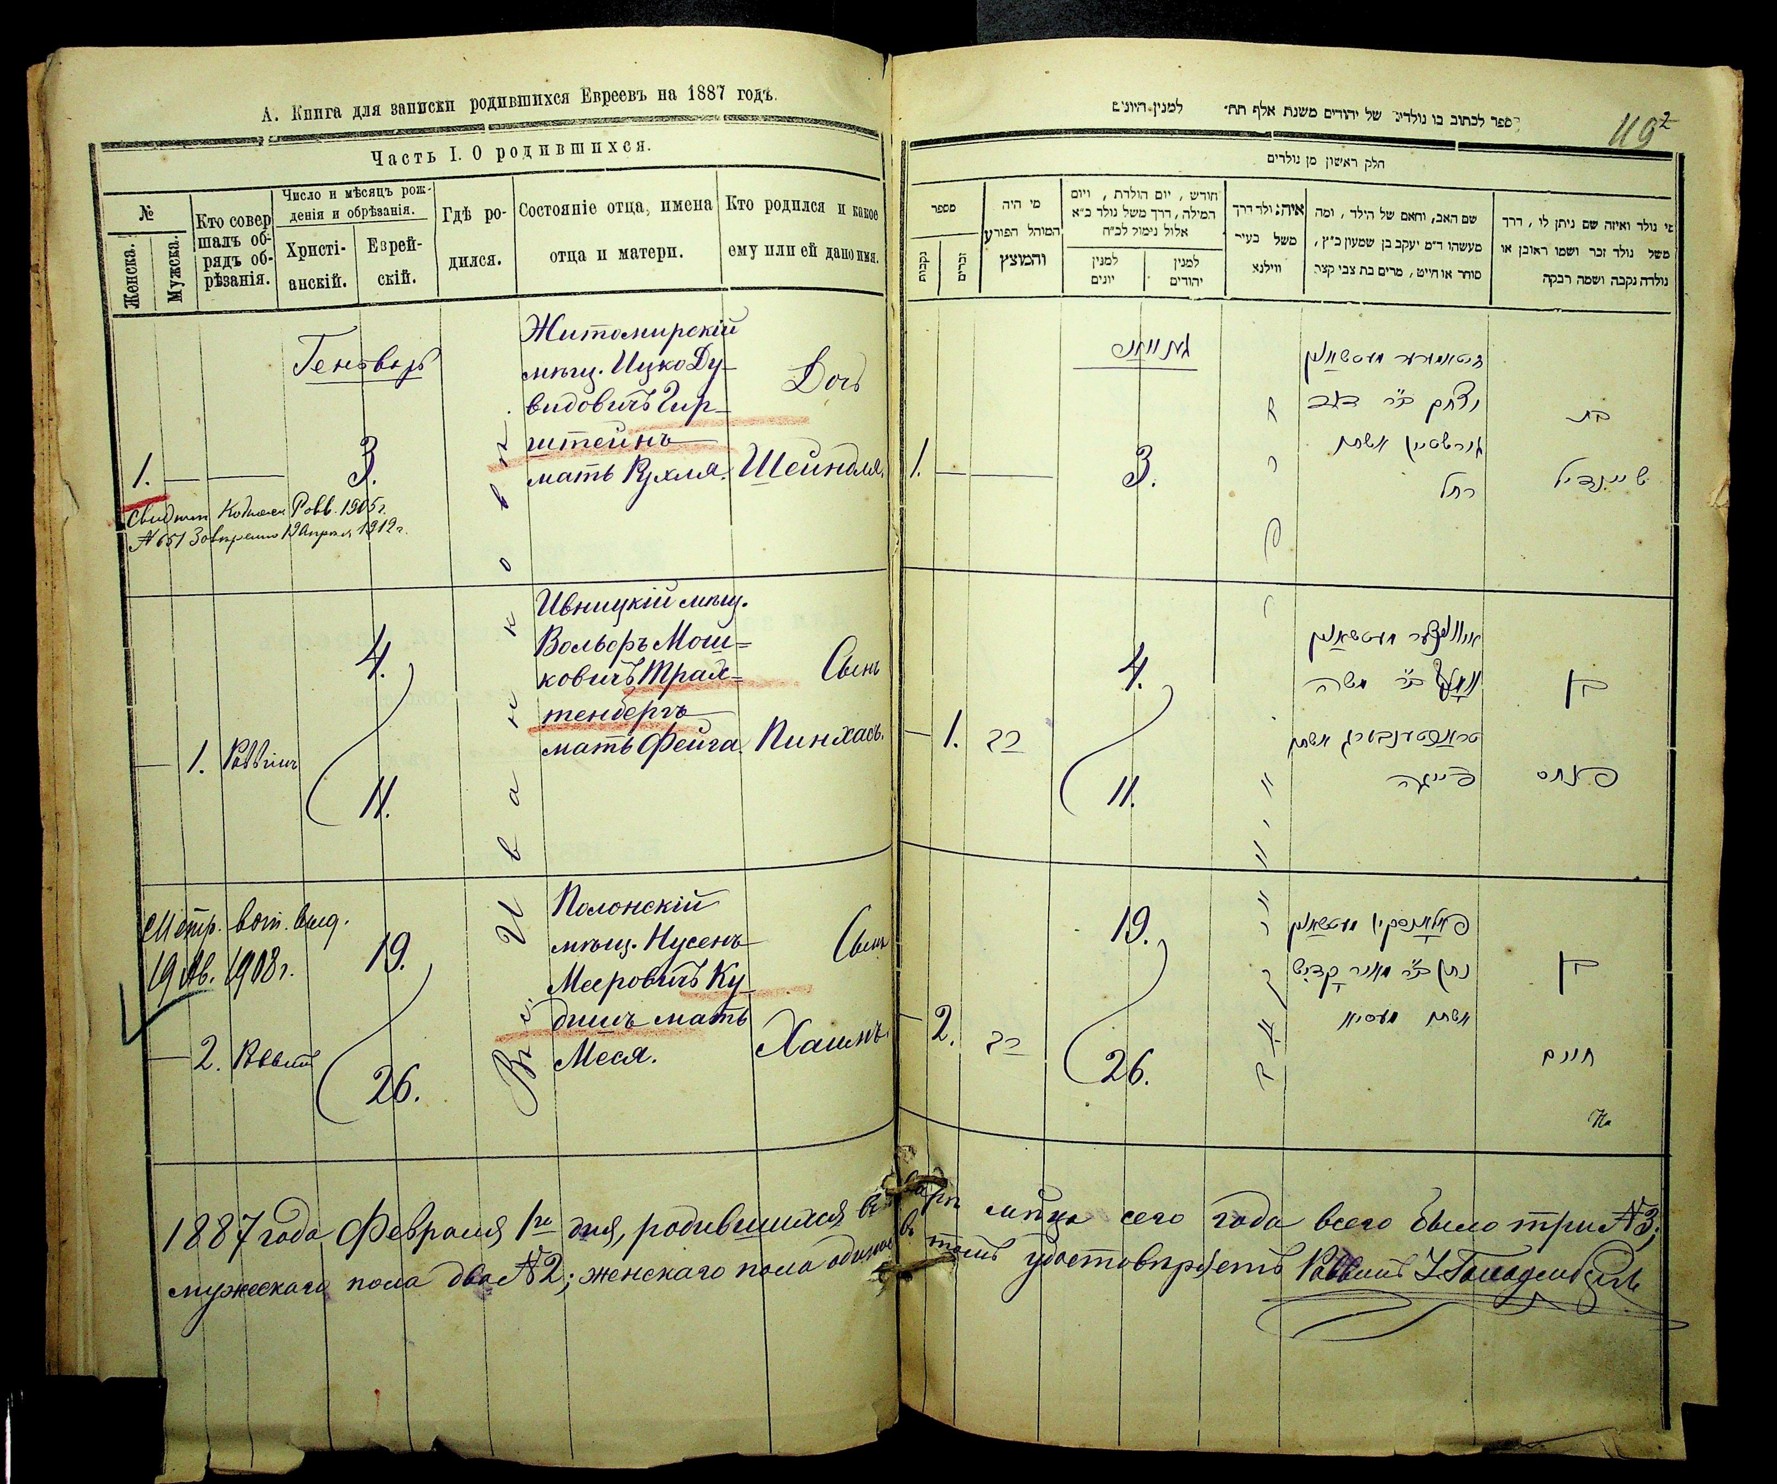 А. Книга для записки родившихся Евреевъ на 1887 годъ.
Часть I. О родившихся.
№
Женска.
Мужска.
Кто совер
шалъ об-
рядъ об-
рѣзанія.
Число и мѣсяцъ рож-
денія и обрѣзанія.
Христі-
анскій.
Еврей-
скій.
Гдѣ ро-
дился.
Состояніе отца, имена
отца и матери.
Кто родился и какое
ему или ей дано имя.
Генварь
1. — — 3.
Житомирскій
мѣщ. Ицко Ду-
видовичъ Гир-
штейнъ
мать Рухля.
Дочь
Шейндля.
1905 г.
№ 651 19 Апреля 1912 г.
— 1. Раввинъ
4.
11.
Ивницкій мѣщ.
Вольфъ Мош=
ковичъ Трах=
тенбергъ
мать Фейга.
Сынъ
Пинхасъ.
Метр. выд.
19 1908 г.
— 2. Раввинъ
19.
26.
Полонскій
мѣщ. Нусенъ
Мееровичъ Ку-
дишъ мать
Меся.
Сынъ
Хаимъ.
В м. Иванковѣ
ספר לכתוב בו נולדים של יהודים משנת אלף תת׳ למנין היונים
119
חלק ראשון מן נולדים
מספר
נקבות
זכרים
מי היה
המוהל הפורע
והמוצץ
חורש, יום הולדת, ויום
המילה, דרך משל נולד כ״א
אלול נימול לכ״ח
למנין
יונים
למנין
יהודים
איה נולד דרך
משל בעיר
ווילנא
שם האב, והאם של הילד, ומה
מעשהו ד״מ יעקב בן שמעון כ״ץ,
סוחר או חייט, מרים בת צבי קצר
מי נולד ואיזה שם ניתן לו, דרך
משל נולד זכר ושמו ראובן או
נולדה נקבה ושמה רבקה
1. — — 3.
יצחק ב״ר דוב
גורשטיין אשתו
רחל
בת
שיינדיל
— 1. רב
4.
11.
וואלף ב״ר משה
אשתו
פייגה
בן
פנחס
— 2. רב
19.
26.
נתן ב״ר מאיר קדיש
אשתו מעסיא
בן
חיים
1887 года Февраля 1го дня, родившихся въ мѣцѣ сего года всего было три №3;
мужескаго пола два №2; женскаго пола одинъ въ томъ удостовѣряетъ Раввинъ